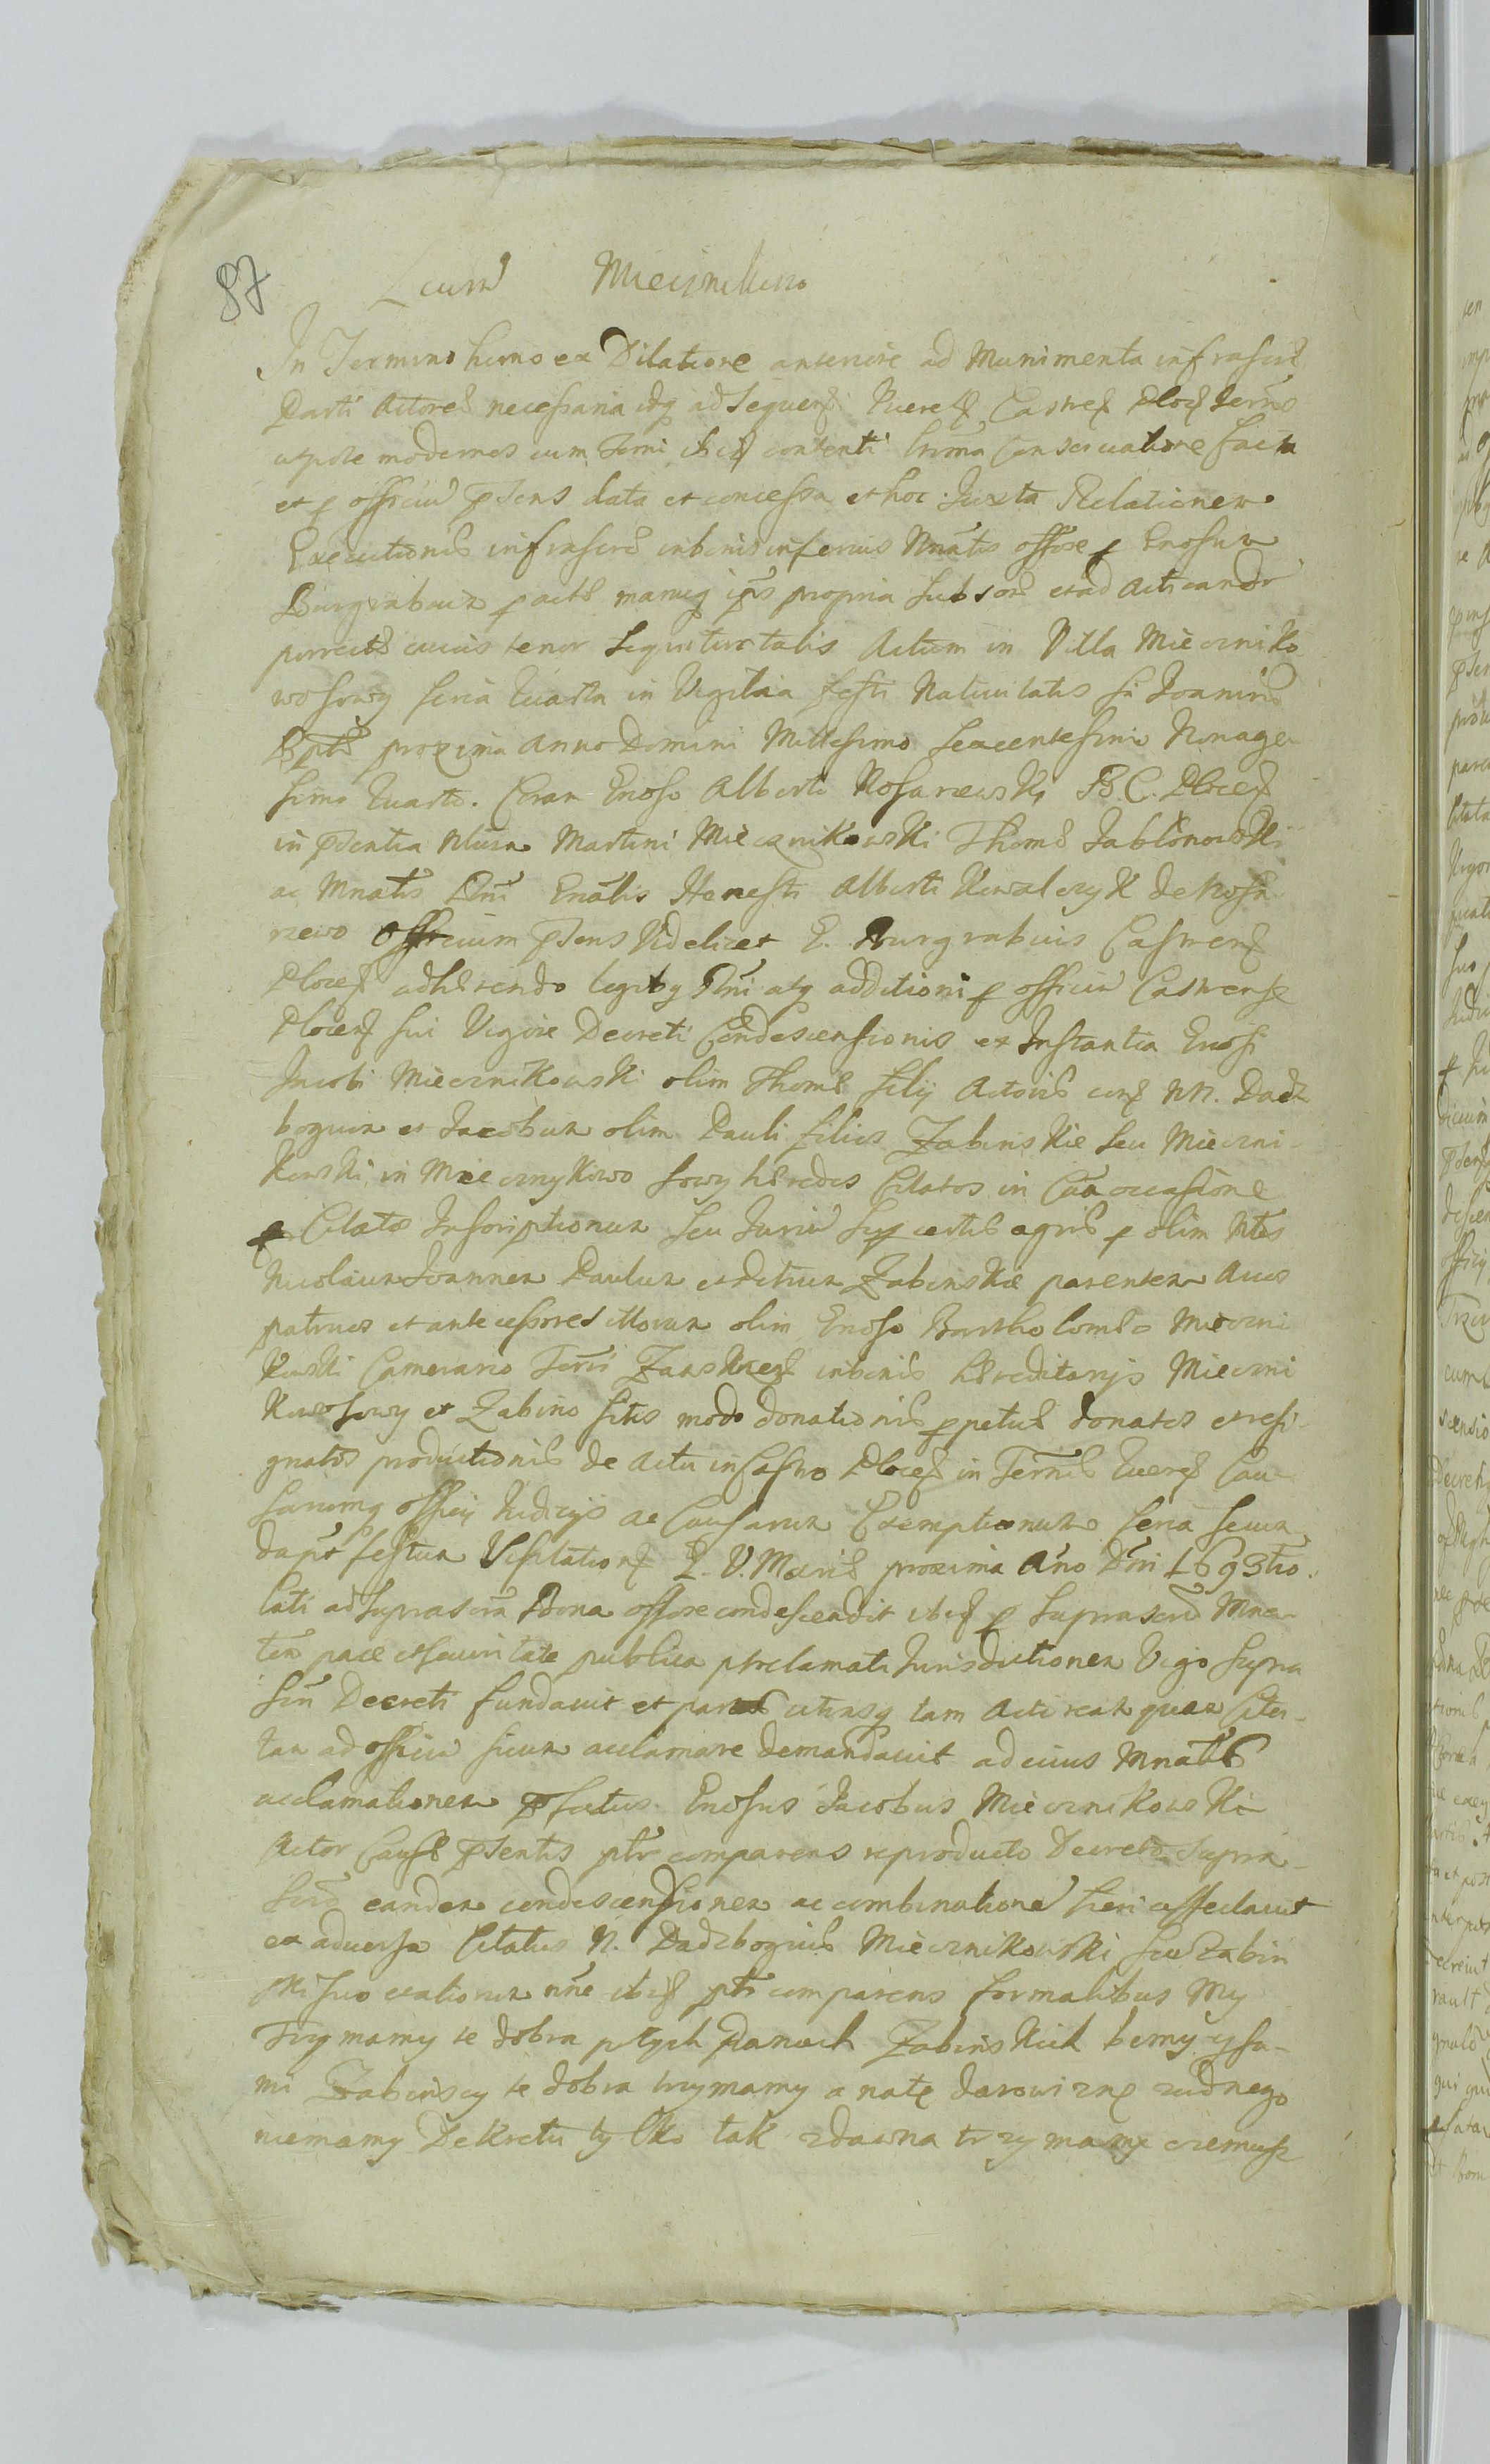 87
Miecznikowo
In Termino hierno ex Dilatione anteriore ad Munimenta infrascr
Parti Actoreae necessaria idq ad sequens Querel Castres Ploces Termnos
utpote modernos cum Termi ibid contenti conservatione facta
et p officiu pdens data et concessa et hoc Juxta Relationem
Executionis infrascrae in bonis inferius Mnatis offose p Gnosum
Burgrabium p actae manuq ips propria subscrae et ad acticandu
porrectae cuius tenor sequitur talis Actum in Villa Mieczniko
wo sowy feria quarta in Vigilia festi Nativitatis Sti Joannis
Bptae proxima Anno Domini Millesimo Sexcentesimo Nonage
simo Quarto. Coram Gnoso Alberto Kosarzewski B. C. Ploces
in pdentia Nlium Martini Miecznikowski Thomae Jablonowski
ac Mnatis Rni Gnalis Honesti Alberti Kowalczyk de Kosa
rzewo officium pdens Videlicet G. Burgrabius Castrens
Ploces adhaerendo legibq Rni atq additioni p officiu Castrense
Plocens sui Vigore Decreti Condescensionis ex Instantia Gnosi
Jacobi Miecznikowski olim Thomae filij Actoris cons NN. Dadz
bogium et Jacobum olim Pauli filios Zabinskie seu Mieczni
kowski in Miecznykowo sowy haeredes Citatos in Caa occasione
p Citatos Inscriptionum seu Juriu sup certis agris p olim Nles
Nicolaum Joannem Paulum et Petrum Zabinskie parentem Avos
patruos et antecessores illorum olim Gnoso Bartholomaeo Mieczni
kowski Camerario Terrae Zawskres in bonis haereditarijs Mieczni
kowo sowy et Zabino sitis modo donationis ppetuae donatos et resi
gnatos productionis de actu in Castro Ploces in Termis Querel Cau
sarumq officij Judicijs ac Causarum Exemptionum feria secun
da pt festum Visitationis B. V. Mariae proxima Ano Dni 1693tio.
lati ad suprascra Bona offose condescendit ibid p suprascru Mna
tem pace et securitate publica proclamata Jurisdictionem Vigo supra
scri Decreti fundavit et partes utrasq tam Actoream quam Cita
tam ad officiu sicum acclamare demandavit ad cuius Mnatis
acclamationem pfatus Gnosus Jacobus Miecznikowski
Actor Causae pdentis ptr comparens reproducto Decreto supra
scro eandem condescensionem ac combinatione fieri affectavit
ex adversa Citatus N. Dadzbogius Miecznikowski seu Zabin
ski suo ac aliorum nne ibid ptr comparens formalibus My
Trzymamy te dobra p tych Panach Zabinskich bo my sysa
mi Zabinscy te dobra trzymamy a natę darowiznę zadnego
niemamy Dekretu tylko tak zdawna trzymamy czemusz